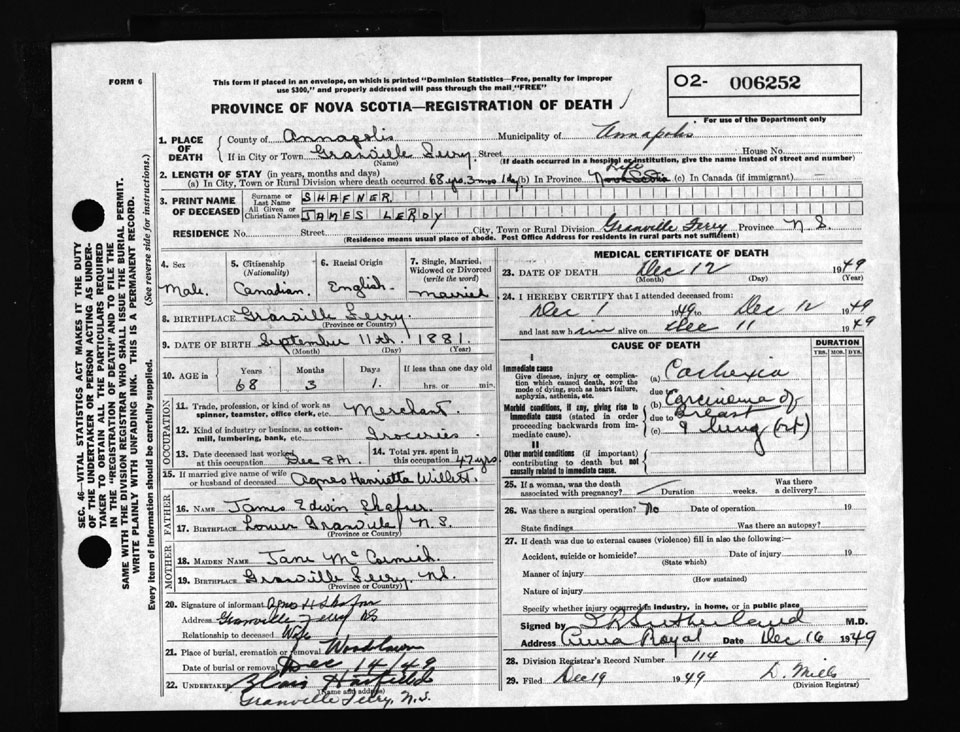 FORM 6
This form if placed in an envelope, on which is printed "Dominion Statistics—Free, penalty for improper
use $300," and properly addressed will pass through the mail "FREE"
O2- 006252
For use of the Department only
PROVINCE OF NOVA SCOTIA—REGISTRATION OF DEATH
SEC. 46—VITAL STATISTICS ACT MAKES IT THE DUTY
OF THE UNDERTAKER OR PERSON ACTING AS UNDER-
TAKER TO OBTAIN ALL THE PARTICULARS REQUIRED
IN THE "REGISTRATION OF DEATH" AND TO FILE THE
SAME WITH THE DIVISION REGISTRAR WHO SHALL ISSUE THE BURIAL PERMIT.
WRITE PLAINLY WITH UNFADING INK. THIS IS A PERMANENT RECORD.
Every item of information should be carefully supplied. (See reverse side for instructions.)
1. PLACE OF DEATH County of Annapolis Municipality of Annapolis
If in City or Town Granville Ferry Street House No.
(Name) (If death occurred in a hospital or institution, give the name instead of street and number)
2. LENGTH OF STAY (in years, months and days)
(a) In City, Town or Rural Division where death occurred 68 yrs. 3 mos 1 day (b) In Province Life Nova Scotia (c) In Canada (if immigrant)
3. PRINT NAME OF DECEASED Surname or Last Name SHAFNER
All Given or Christian Names JAMES LEROY
RESIDENCE No. Street City, Town or Rural Division Granville Ferry Province N.S.
(Residence means usual place of abode. Post Office Address for residents in rural parts not sufficient)
4. Sex Male.
5. Citizenship (Nationality) Canadian.
6. Racial Origin English.
7. Single, Married, Widowed or Divorced (write the word) Married
8. BIRTHPLACE Granville Ferry.
(Province or Country)
9. DATE OF BIRTH September 11th. 1881.
(Month) (Day) (Year)
10. AGE in Years 68 Months 3 Days 1. If less than one day old hrs. or min.
OCCUPATION
11. Trade, profession, or kind of work as spinner, teamster, office clerk, etc. Merchant.
12. Kind of industry or business, as cotton-mill, lumbering, bank, etc. Groceries.
13. Date deceased last worked at this occupation Dec 8th.
14. Total yrs. spent in this occupation 47 yrs.
15. If married give name of wife or husband of deceased Agnes Henrietta Willett.
FATHER
16. Name James Edwin Shafner.
17. Birthplace Lower Granville N.S.
(Province or Country)
MOTHER
18. MAIDEN NAME Jane McCormick.
19. BIRTHPLACE Granville Ferry, N.S.
(Province or Country)
20. Signature of informant Agnes H Shafner
Address Granville Ferry NS
Relationship to deceased Wife
21. Place of burial, cremation or removal Woodlawn
Date of burial or removal Dec 14/49
22. UNDERTAKER Blair Hatfield
(Name and Address)
Granville Ferry, N.S.
MEDICAL CERTIFICATE OF DEATH
23. DATE OF DEATH Dec 12 1949
(Month) (Day) (Year)
24. I HEREBY CERTIFY that I attended deceased from:
Dec 1 1949 to Dec 12 1949
and last saw him alive on Dec 11 1949
CAUSE OF DEATH
DURATION
YRS. MOS. DYS.
I
Immediate cause
Give disease, injury or complication which caused death, NOT the mode of dying, such as heart failure, asphyxia, asthenia, etc.
(a) Cachexia
due to
Morbid conditions, if any, giving rise to immediate cause (stated in order proceeding backwards from immediate cause).
(b) Carcinoma of
due to Breast
(c) & lung (rt)
II
Other morbid conditions (if important) contributing to death but not causally related to immediate cause.
25. If a woman, was the death associated with pregnancy? Duration weeks. Was there a delivery?
26. Was there a surgical operation? No Date of operation 19
State findings Was there an autopsy?
27. If death was due to external causes (violence) fill in also the following:
Accident, suicide or homicide? Date of injury 19
(State which)
Manner of injury
(How sustained)
Nature of injury
Specify whether injury occurred in industry, in home, or in public place
Signed by Sutherland M.D.
Address Anna Royal Date Dec 16 1949
28. Division Registrar's Record Number 114
29. Filed Dec 19 1949 D. Mills
(Division Registrar)